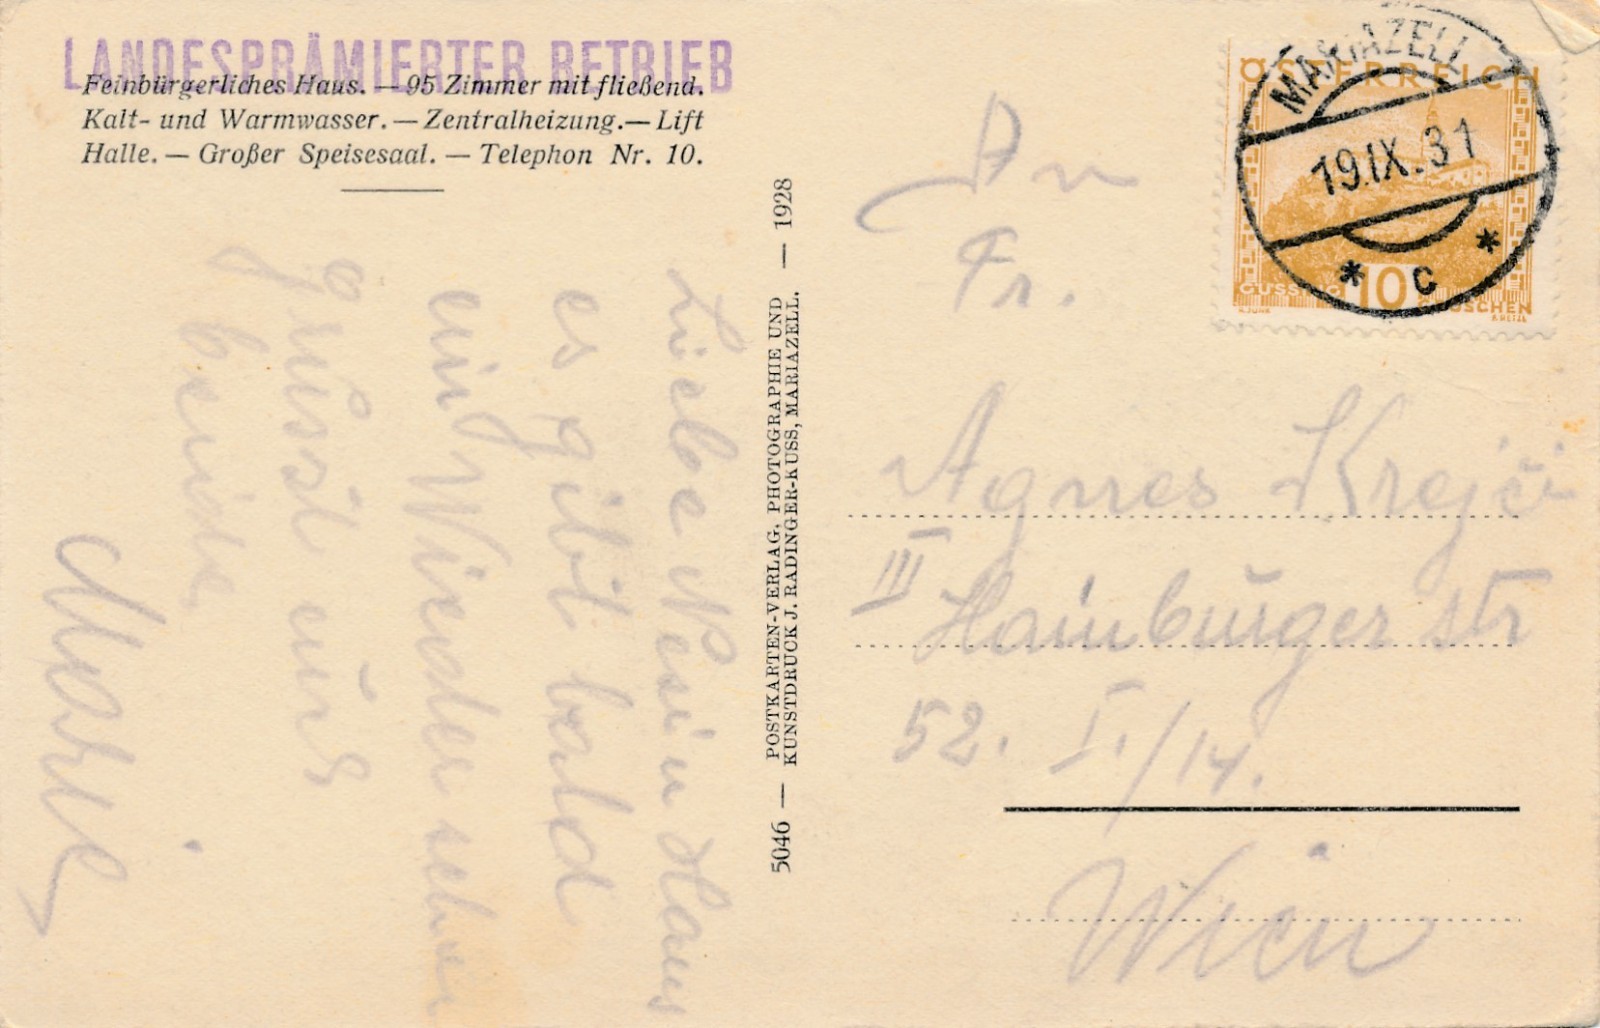 LANDESPRÄMIERTER BETRIEB
Feinbürgerliches Haus. — 95 Zimmer mit fließend.
Kalt- und Warmwasser. — Zentralheizung. — Lift
Halle. — Großer Speisesaal. — Telephon Nr. 10.
Liebe Resi u Hans
es gibt bald
ein Wiedersehen
grüsst eür
beide
Marie
5046 — POSTKARTEN-VERLAG, PHOTOGRAPHIE UND — 1928
KUNSTDRUCK J. RADINGER-KUSS, MARIAZELL.
MARIAZELL
19.IX.31
* C *
ÖSTERREICH
GÜSSING 10 GROSCHEN
An
Fr.
Agnes Krejči
III Hainbürger str
52. I./14.
Wien